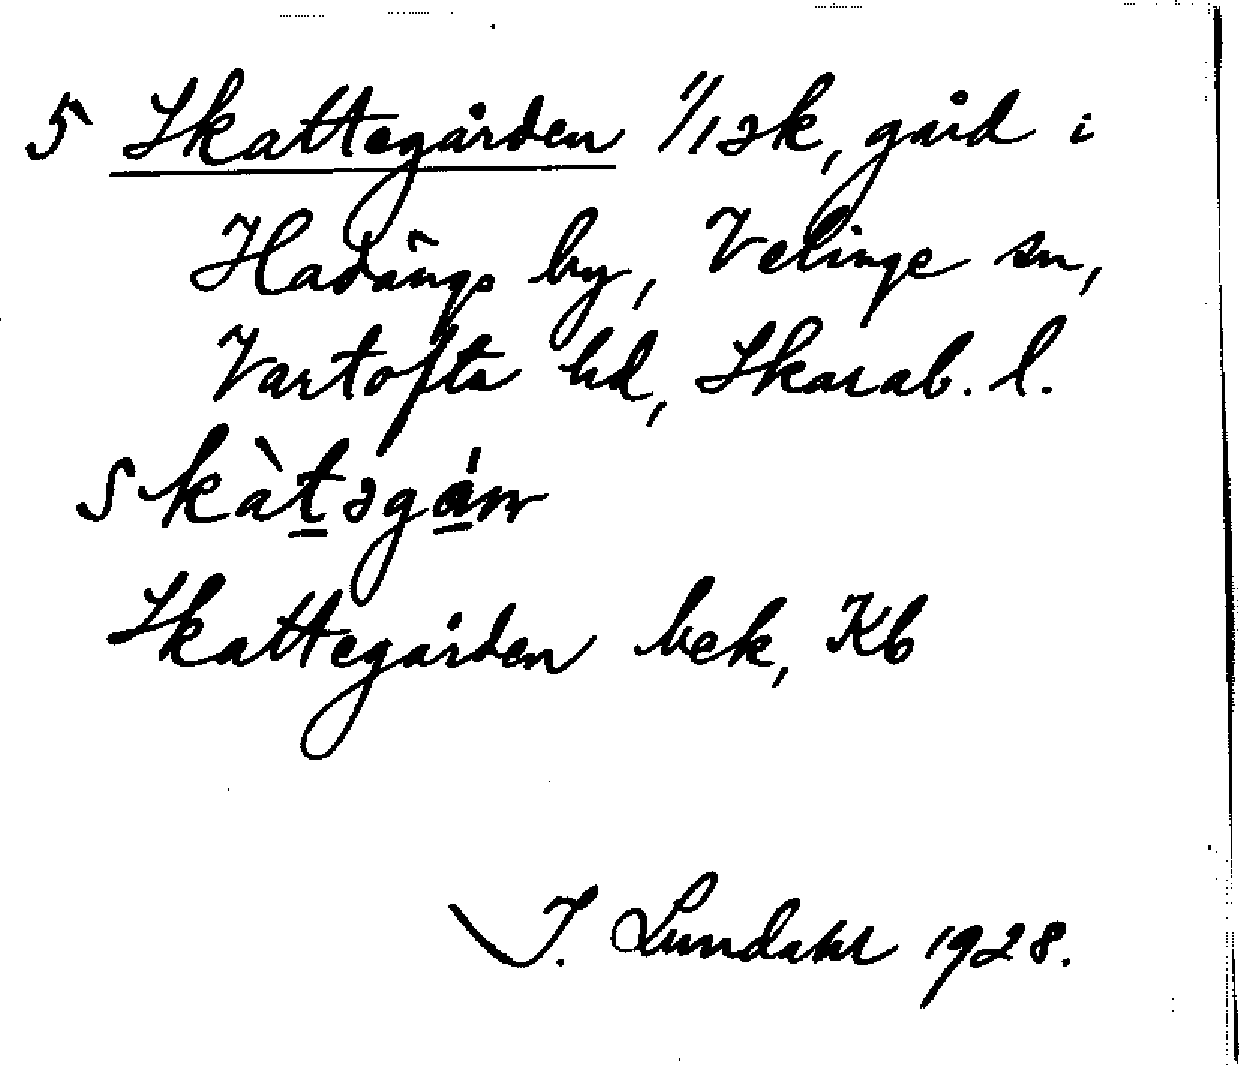 5 Skattegården 1/1 sk, gård i
Hadängs by, Velinge sn,
Vartofta hd, Skarab. l.
skàtəgán
Skattegården bek, Kb
I. Lundahl 1928.